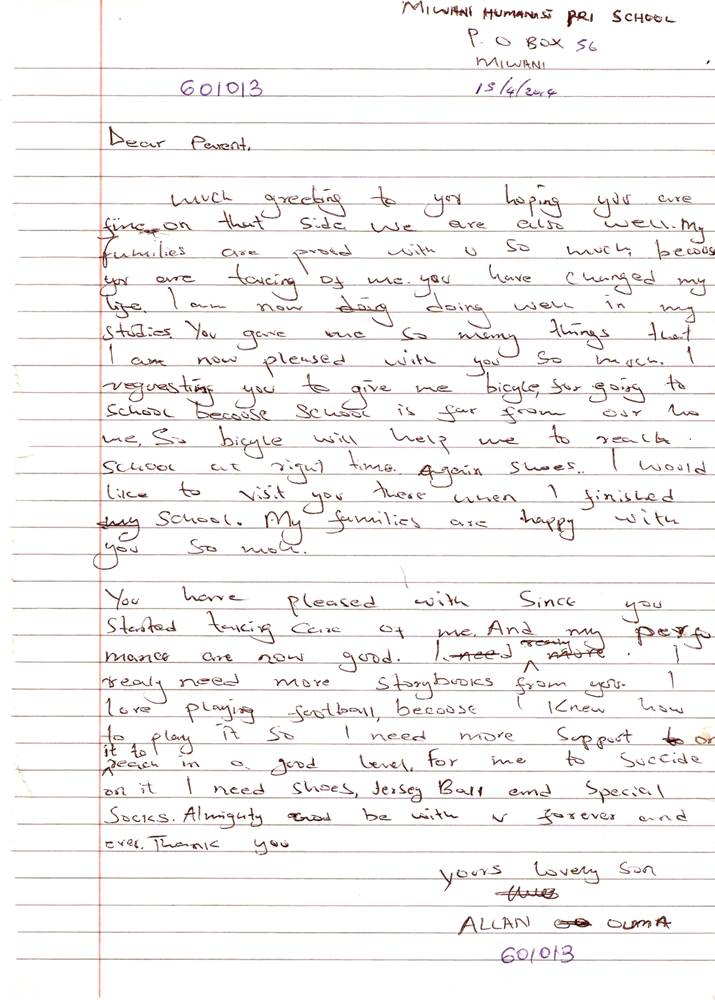 MIWANI HUMANIST PRI SCHOOL
P. O BOX 56
MIWANI
601013
15/4/2014
Dear Parent,
much greeting to you hoping you are
fine on that side we are also well. My
families are proud with u so much, becouse
you are taking of me. you have changed my
life. I am now doing doing well in my
studies. You gave me so many things that
I am now pleased with you so much. I
requesting you to give me bicyle, for going to
school becouse school is far from our ho
me, So bicyle will help me to reach.
school at right time. Again shoes.. I would
like to visit you there when I finished
my school. My families are happy with
you so moh.
You have pleased with Since you
Started taking care of me. And my perfo
mance are now good. I need realy more. I
realy need more storybooks from you. I
love playing football, becoose I knew how
to play it so I need more support to or
it to
reach in a good level, for me to succide
on it I need shoes, Jersey Ball and Special
Socks. Almighty be with u forever and
ever. Thank you
yours lovely son
ALLAN OUMA
601013